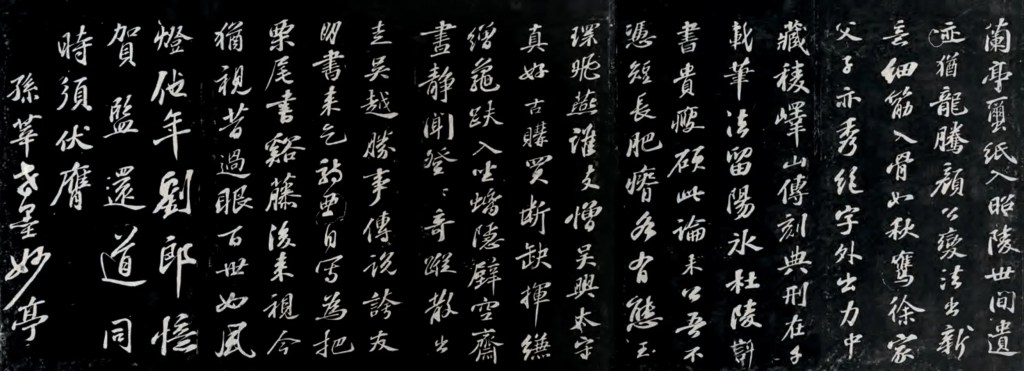 蘭亭蠒紙入昭陵世間遺
迹猶龍騰顏公變法出新
意細筋入骨如秋鷹徐家
父子亦秀絕字外出力中
藏稜嶧山傳刻典刑在千
載筆法留陽冰杜陵評
書貴瘦硬此論未公吾不
憑短長肥瘠各有態玉
環飛燕誰敢憎吳興太守
真好古購買斷缺揮縑
繒龜趺入坐螭隱壁空齋
晝靜聞登〻奇蹤散出
走吳越勝事傳說誇友
朋書來乞詩要自寫為把
栗尾書谿藤後來視今
猶視昔過眼百世如風
燈他年劉郎憶
賀監還道同
時須伏膺
孫莘老墨妙亭